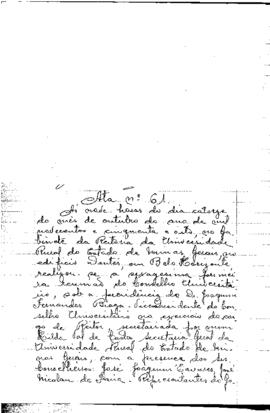 Ata nº 61.
Às nove horas do dia catorze
do mês de outubro do ano de mil
novecentos e cinquenta e oito, no Ga-
binete da Reitoria da Universidade
Rural do Estado de Minas Gerais, no
edifício Dantés, em Belo Horizonte
realizou-se a sexagésima primei-
ra reunião do Conselho Universitá-
rio, sob a presidência do Dr. Joaquim
Fernandes Braga - Vice-Presidente do Con-
selho Universitário no exercício do car-
go de Reitor, e secretariada por mim
secretária Geral da
Universidade Rural do Estado de Mi-
nas Gerais, com a presença dos srs.
Conselheiros: José Joaquim Tavares José
de Faria - Representantes do